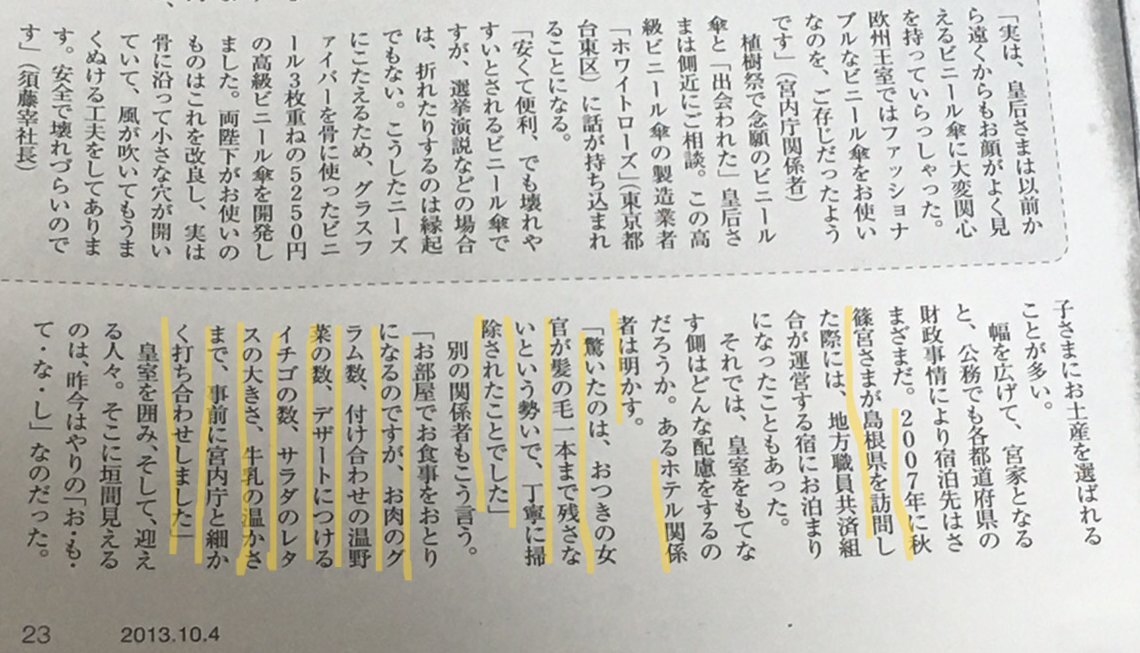 「実は、皇后さまは以前か
ら遠くからもお顔がよく見
えるビニール傘に大変関心
を持っていらっしゃった。
欧州王室ではファッショナ
ブルなビニール傘をお使い
なのを、ご存じだったよう
です」(宮内庁関係者)
植樹祭で念願のビニール
傘と「出会われた」皇后さ
まは側近にご相談。この高
級ビニール傘の製造業者
「ホワイトローズ」(東京都
台東区)に話が持ち込まれ
ることになる。
「安くて便利、でも壊れや
すいとされるビニール傘で
すが、選挙演説などの場合
は、折れたりするのは縁起
でもない。こうしたニーズ
にこたえるため、グラスフ
ァイバーを骨に使ったビニ
ール3枚重ねの5250円
の高級ビニール傘を開発し
ました。両陛下がお使いの
ものはこれを改良し、実は
骨に沿って小さな穴が開い
ていて、風が吹いてもうま
くぬける工夫をしてありま
す。安全で壊れづらいので
す」(須藤宰社長)
子さまにお土産を選ばれる
ことが多い。
幅を広げて、宮家となる
と、公務でも各都道府県の
財政事情により宿泊先はさ
まざまだ。2007年に秋
篠宮さまが島根県を訪問し
た際には、地方職員共済組
合が運営する宿にお泊まり
になったこともあった。
それでは、皇室をもてな
す側はどんな配慮をするの
だろうか。あるホテル関係
者は明かす。
「驚いたのは、おつきの女
官が髪の毛一本まで残さな
いという勢いで、丁寧に掃
除されたことでした」
別の関係者もこう言う。
「お部屋でお食事をおとり
になるのですが、お肉のグ
ラム数、付け合わせの温野
菜の数、デザートにつける
イチゴの数、サラダのレタ
スの大きさ、牛乳の温かさ
まで、事前に宮内庁と細か
く打ち合わせしました」
皇室を囲み、そして、迎え
る人々。そこに垣間見える
のは、昨今はやりの「お・も・
て・な・し」なのだった。
23 2013.10.4